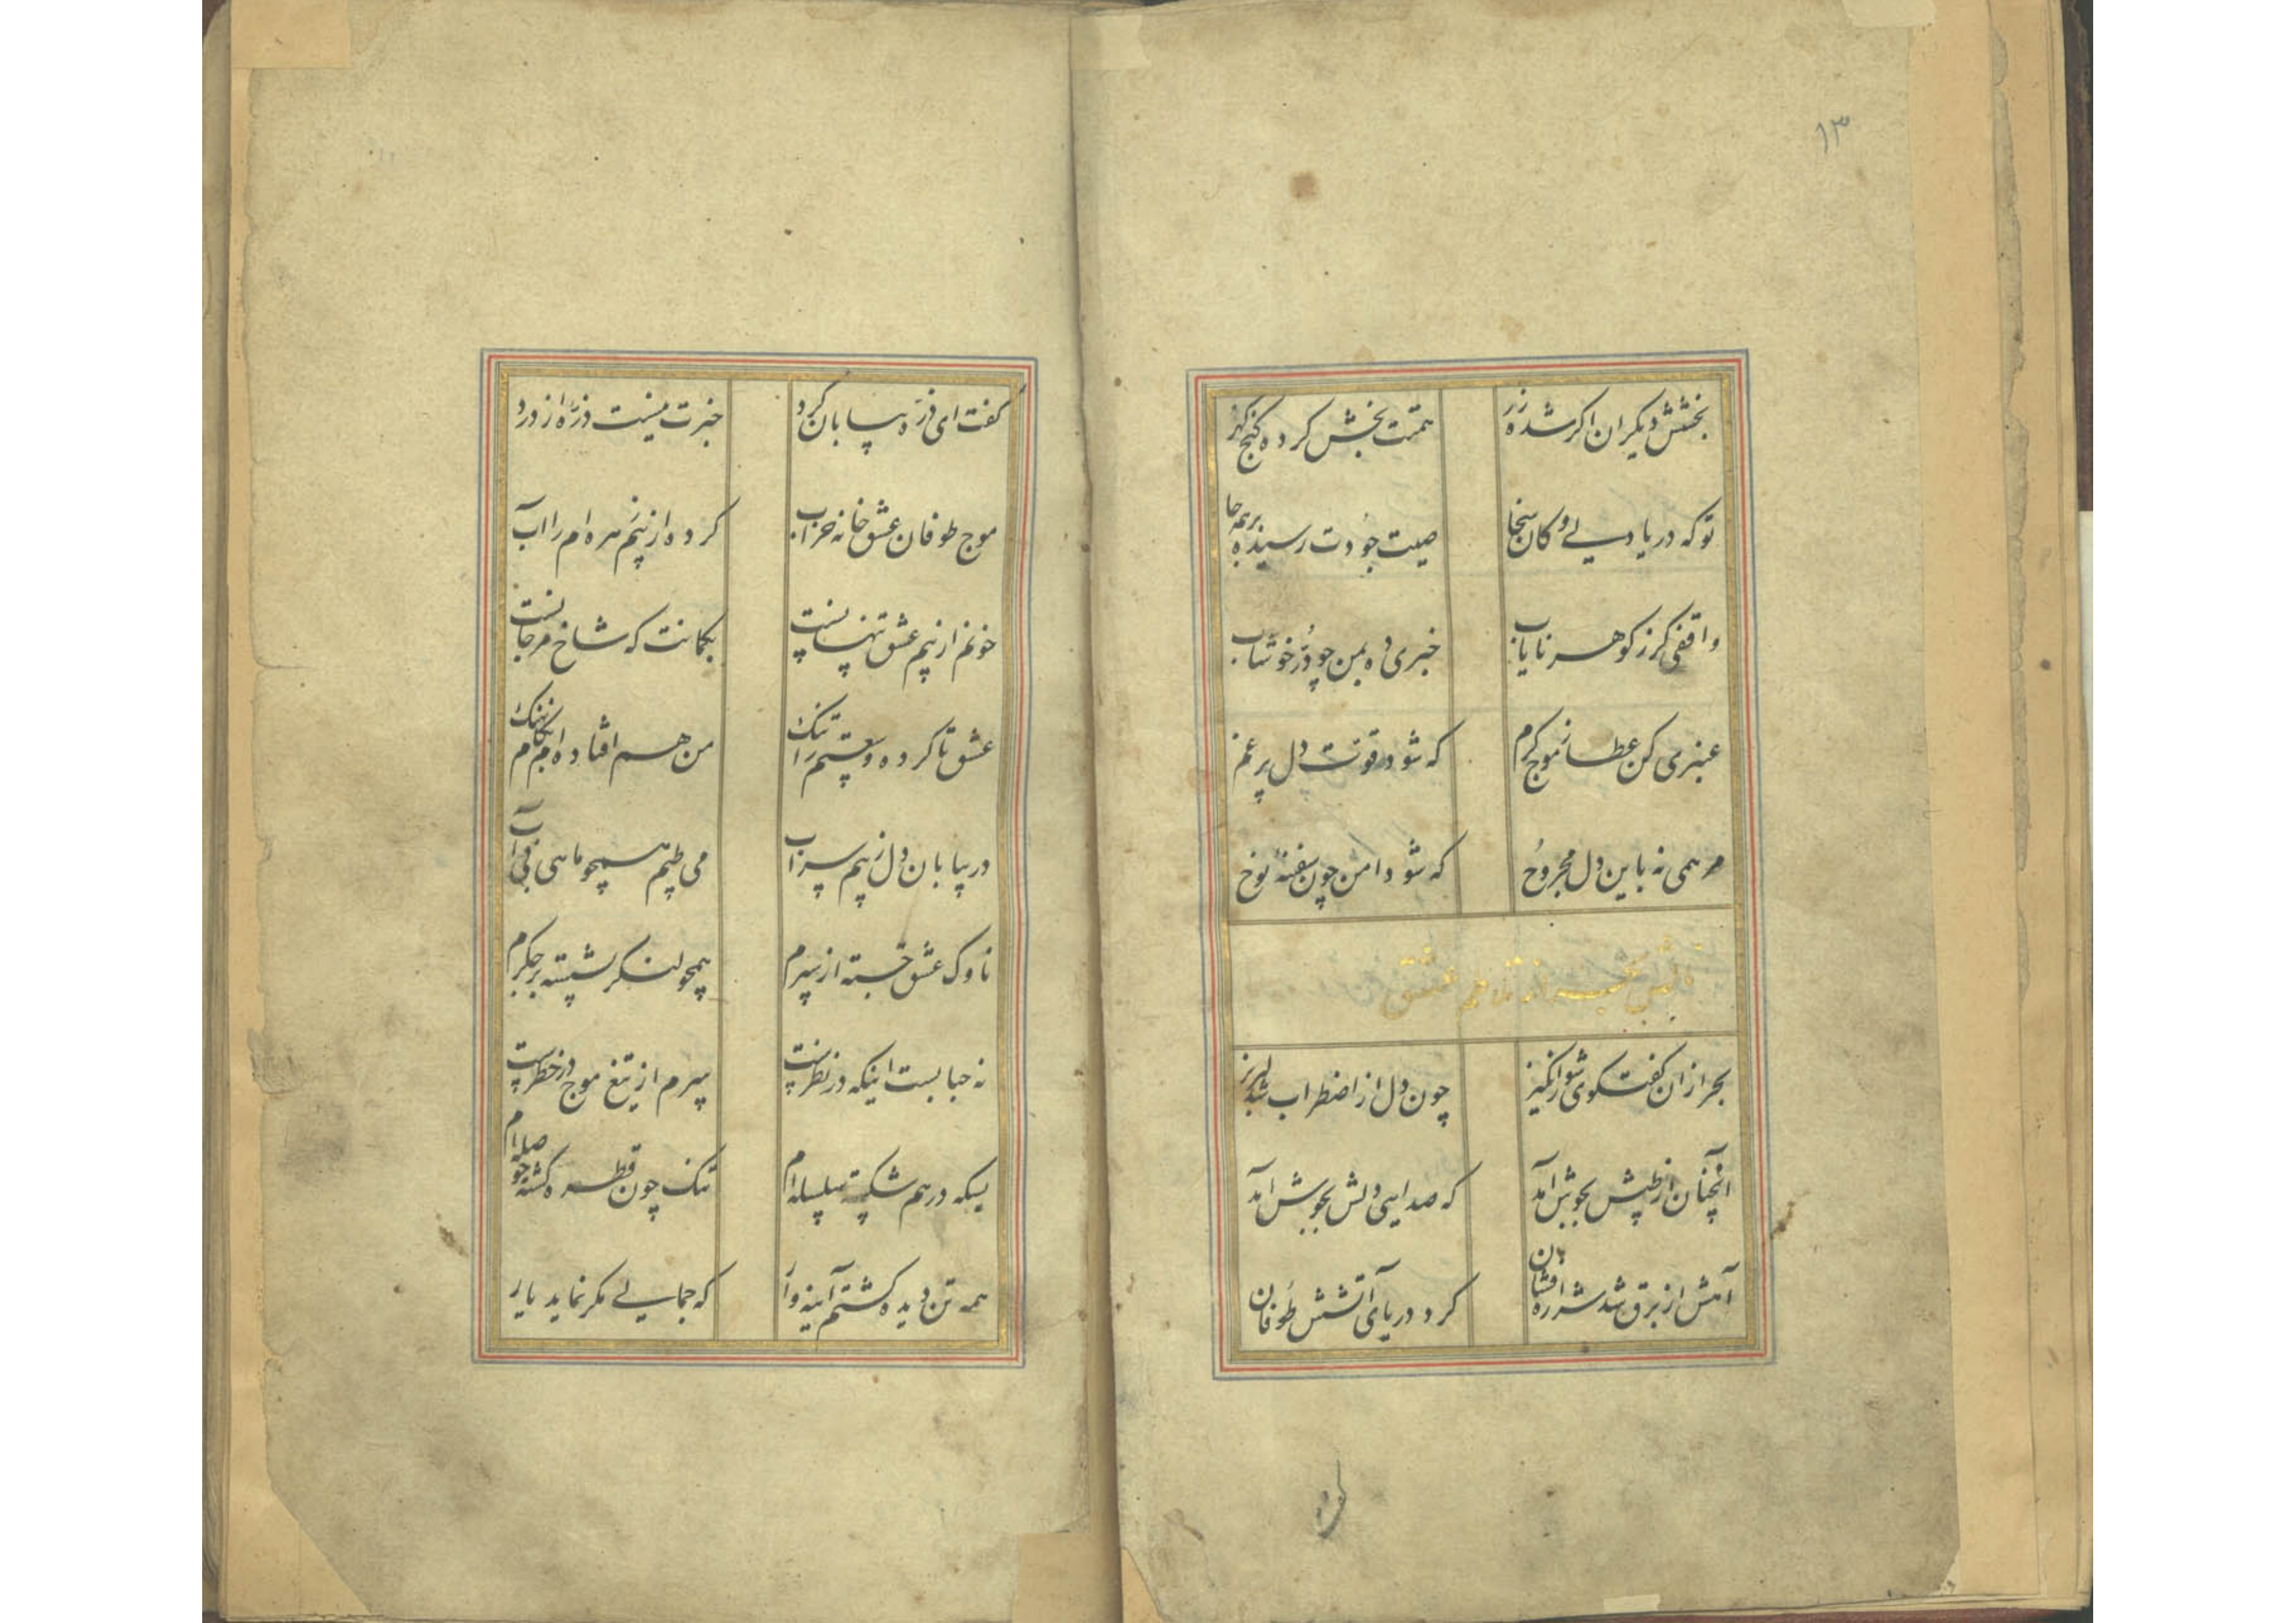 ۱۳
بخشش دیکران اکر شده زر همتت بخش کرده کنج کهر
توکه دریا دلی و کان سخا صیت جودت رسیده بر همه جا
واقفی کر ز کوهر نایاب خبری ده بمن چو در خوشاب
عنبری کن عطا ز موج کرم که شود قوت دل پر غم
مرهمی نه باین دل مجروح که شود امن چون سفینهٔ نوح
از تلاطم عشق
بحر ازان کفتکوی شورانکیز چون دل از اضطراب شد لبریز
آنچنان از طپش بجوش آمد که صدای دلش بجوش آمد
آهش از برق شد شرر افشان کرد دریای آتشش طوفان
کفت
کفت ای ذره بیابان کرد خبرت نیست ذره از درد
موج طوفان عشق خانه خراب کرده از بیم زهره ام را آب
خونم از بیم عشق تنها نیست بکمانت که شاخ مرجانست
عشق تا کرده وسعتم را تنک من هم افتاده ام بکام نهنک
در بیابان دل ز بیم سراب می طپم همچو ماهی بی آب
ناوک عشق جسته از سپرم همچو لنکر نشسته بر جکرم
نه حبابست اینکه در نظرست سپرم از تیغ موج در خطرست
بسکه در هم شکسته سلسله ام تنک چون قطره کشته حوصله ام
همه تن دیده کشتم آینه وار که جمالی مکر نماید یار